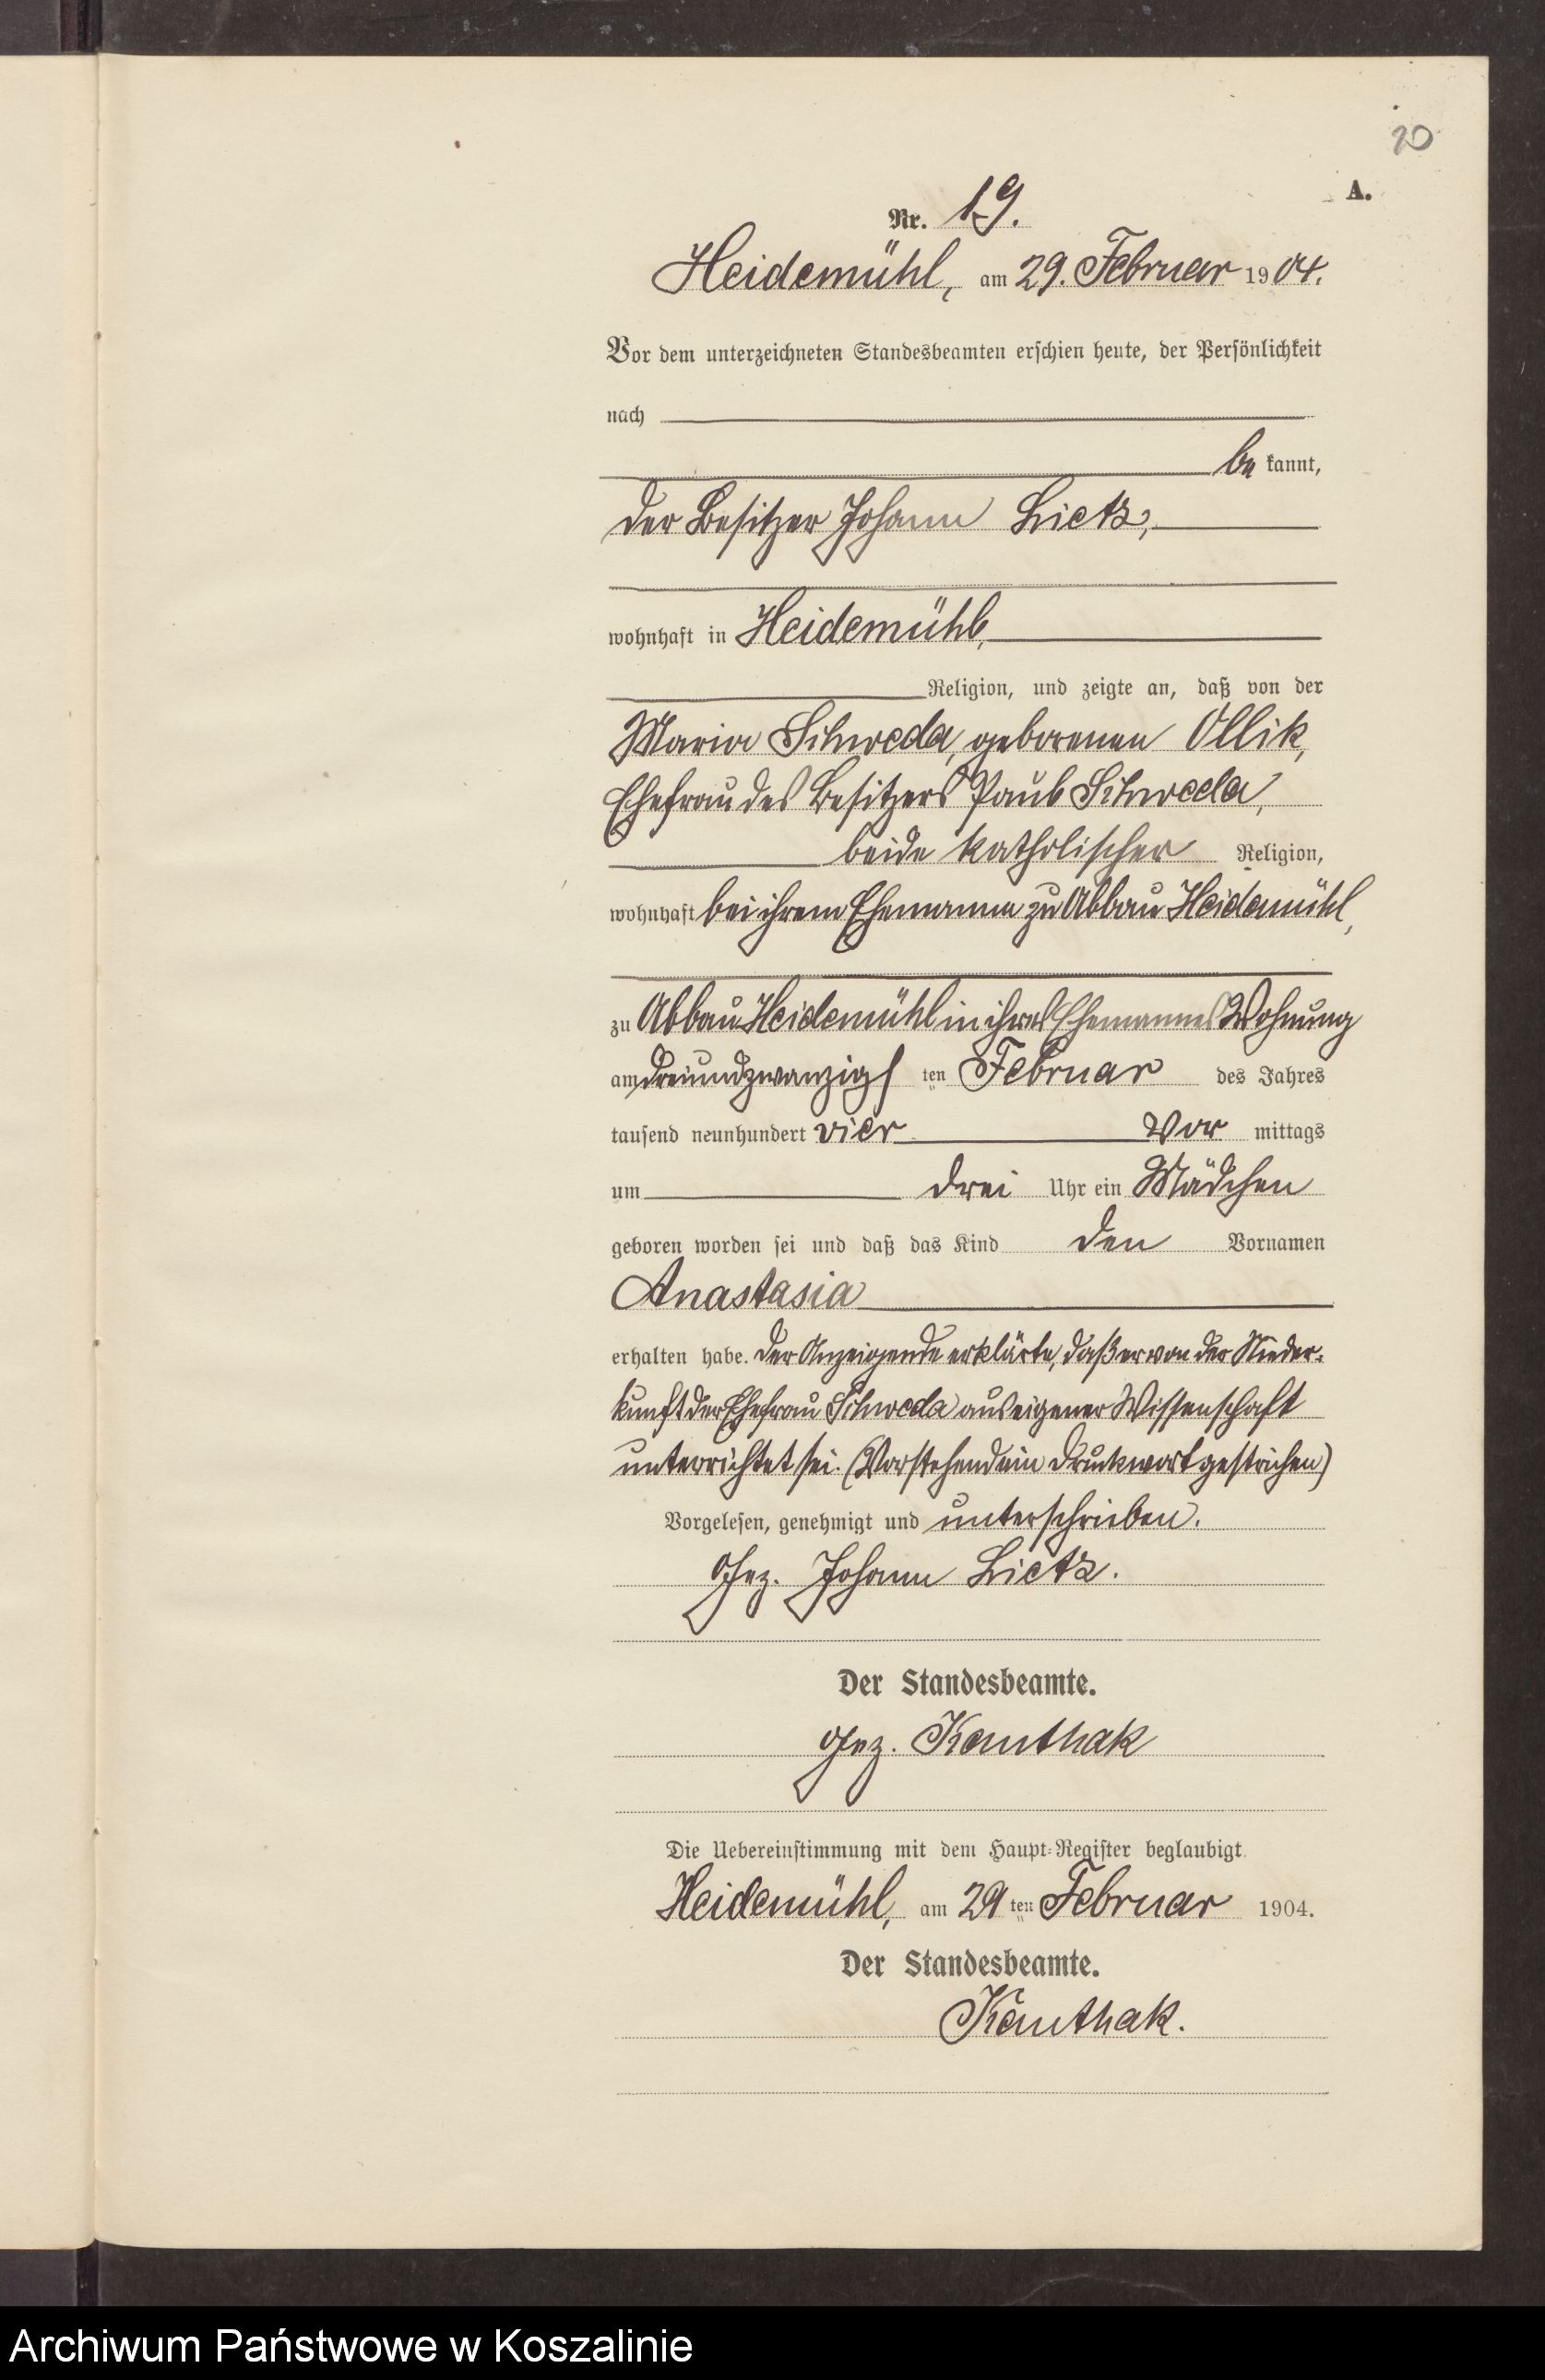 20
A.
Nr. 19.
Heidemühl, am 29. Februar 1904.
Vor dem unterzeichneten Standesbeamten erschien heute, der Persönlichkeit
nach
be kannt,
der Besitzer Johann Lietz,
wohnhaft in Heidemühl,
Religion, und zeigte an, daß von der
Maria Schweda, geborenen Ollik,
Ehefrau des Besitzers Paul Schweda,
beide katholischer Religion,
wohnhaft bei ihrem Ehemanne zu Abbau Heidemühl,
zu Abbau Heidemühl in ihres Ehemannes Wohnung
am dreiundzwanzigs ten Februar des Jahres
tausend neunhundert vier Vor mittags
um drei Uhr ein Mädchen
geboren worden sei und daß das Kind den Vornamen
Anastasia
erhalten habe. Der Anzeigende erklärte, daß er von der Nieder-
kunft der Ehefrau Schweda aus eigener Wissenschaft
unterrichtet sei. (Vorstehend ein Druckwort gestrichen)
Vorgelesen, genehmigt und unterschrieben.
Gez. Johann Lietz.
Der Standesbeamte.
Gez. Kauthak
Die Uebereinstimmung mit dem Haupt-Register beglaubigt
Heidemühl, am 29 ten Februar 1904.
Der Standesbeamte.
Kauthak.
Archiwum Państwowe w Koszalinie